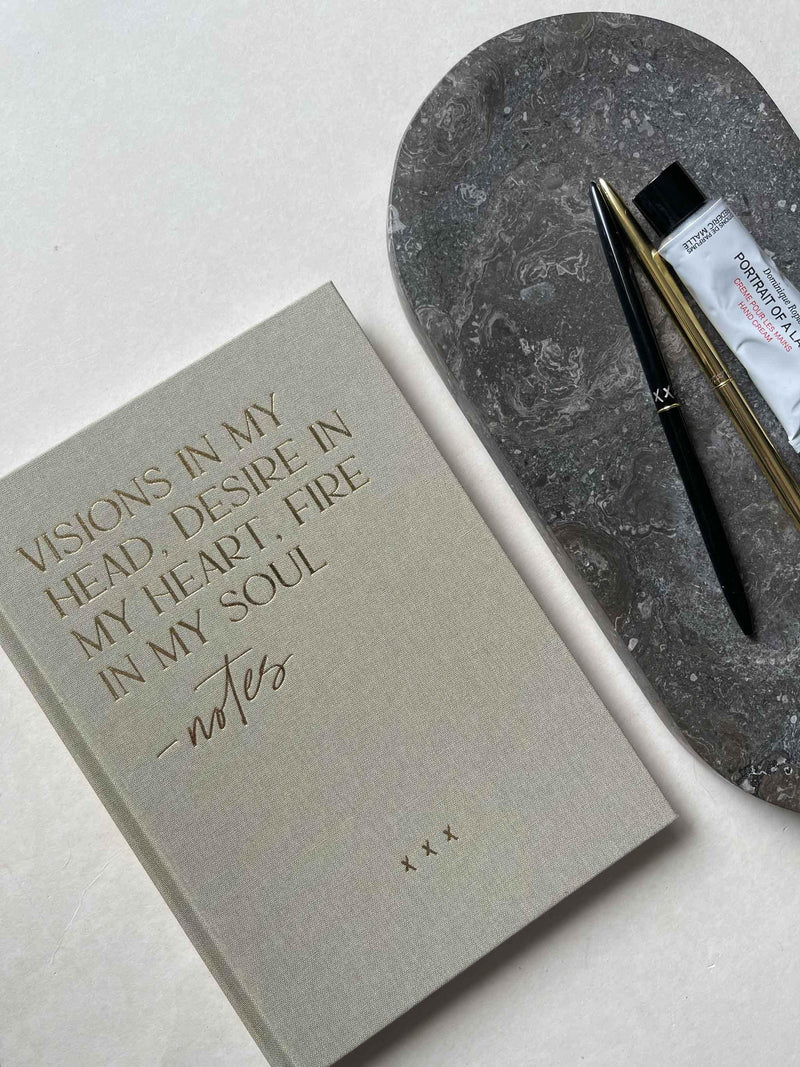 VISIONS IN MY
HEAD, DESIRE IN
MY HEART, FIRE
IN MY SOUL
-notes
x x x
XX
FREDERIC MALLE
Dominique
PORTRAIT OF A
CREME POUR LES MAINS
HAND CREAM